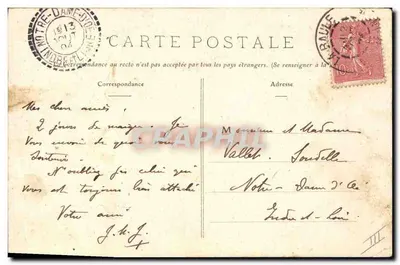 CARTE POSTALE
La Correspondance au recto n'est pas acceptée par tous les pays étrangers. (Se renseigner à la
Correspondance
Adresse
Mes chers amis,
2 jours de Je
Vous envoie de quoi vous
N'oubliez pas celui qui
Vous est toujours bien attaché
Votre ami
Monsieur et Madame
Vallet
Notre-Dame d'Oé
Indre-et-Loire
BAULE
NOTRE-DAME-D'OE
INDRE-ET-L
III